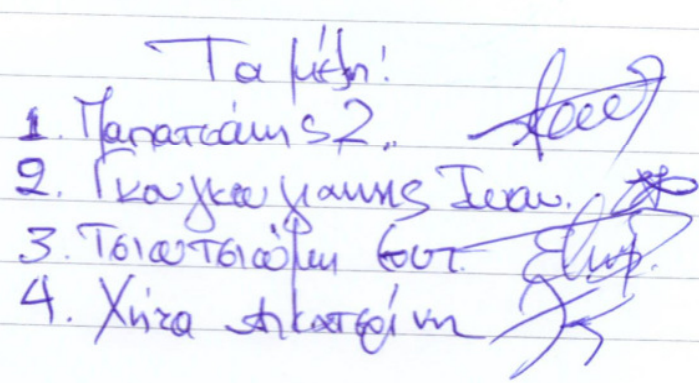 Τα μέλη:
1. Παπατσάκης Ζ..
2. Γκαγκαγιάννης Ιωαν.
3. Τσιωτσιώλη Ευτ.
4. Χήτα Αικατερίνη